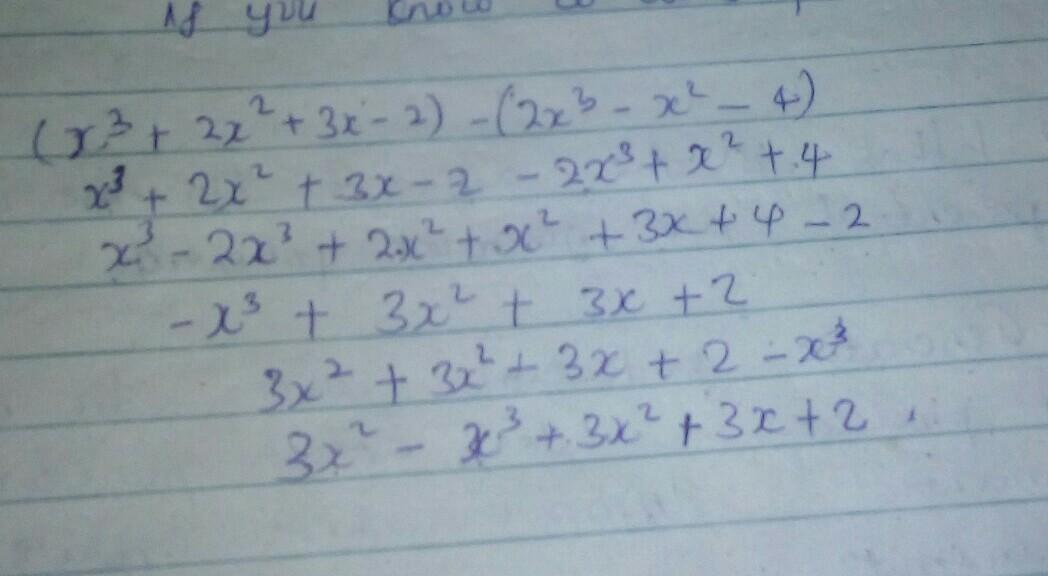 If you know
(x³ + 2x² + 3x - 2) - (2x³ - x² - 4)
x³ + 2x² + 3x - 2 - 2x³ + x² + 4
x³ - 2x³ + 2x² + x² + 3x + 4 - 2
- x³ + 3x² + 3x + 2
3x² + 3x² + 3x + 2 - x³
3x² - x³ + 3x² + 3x + 2 .